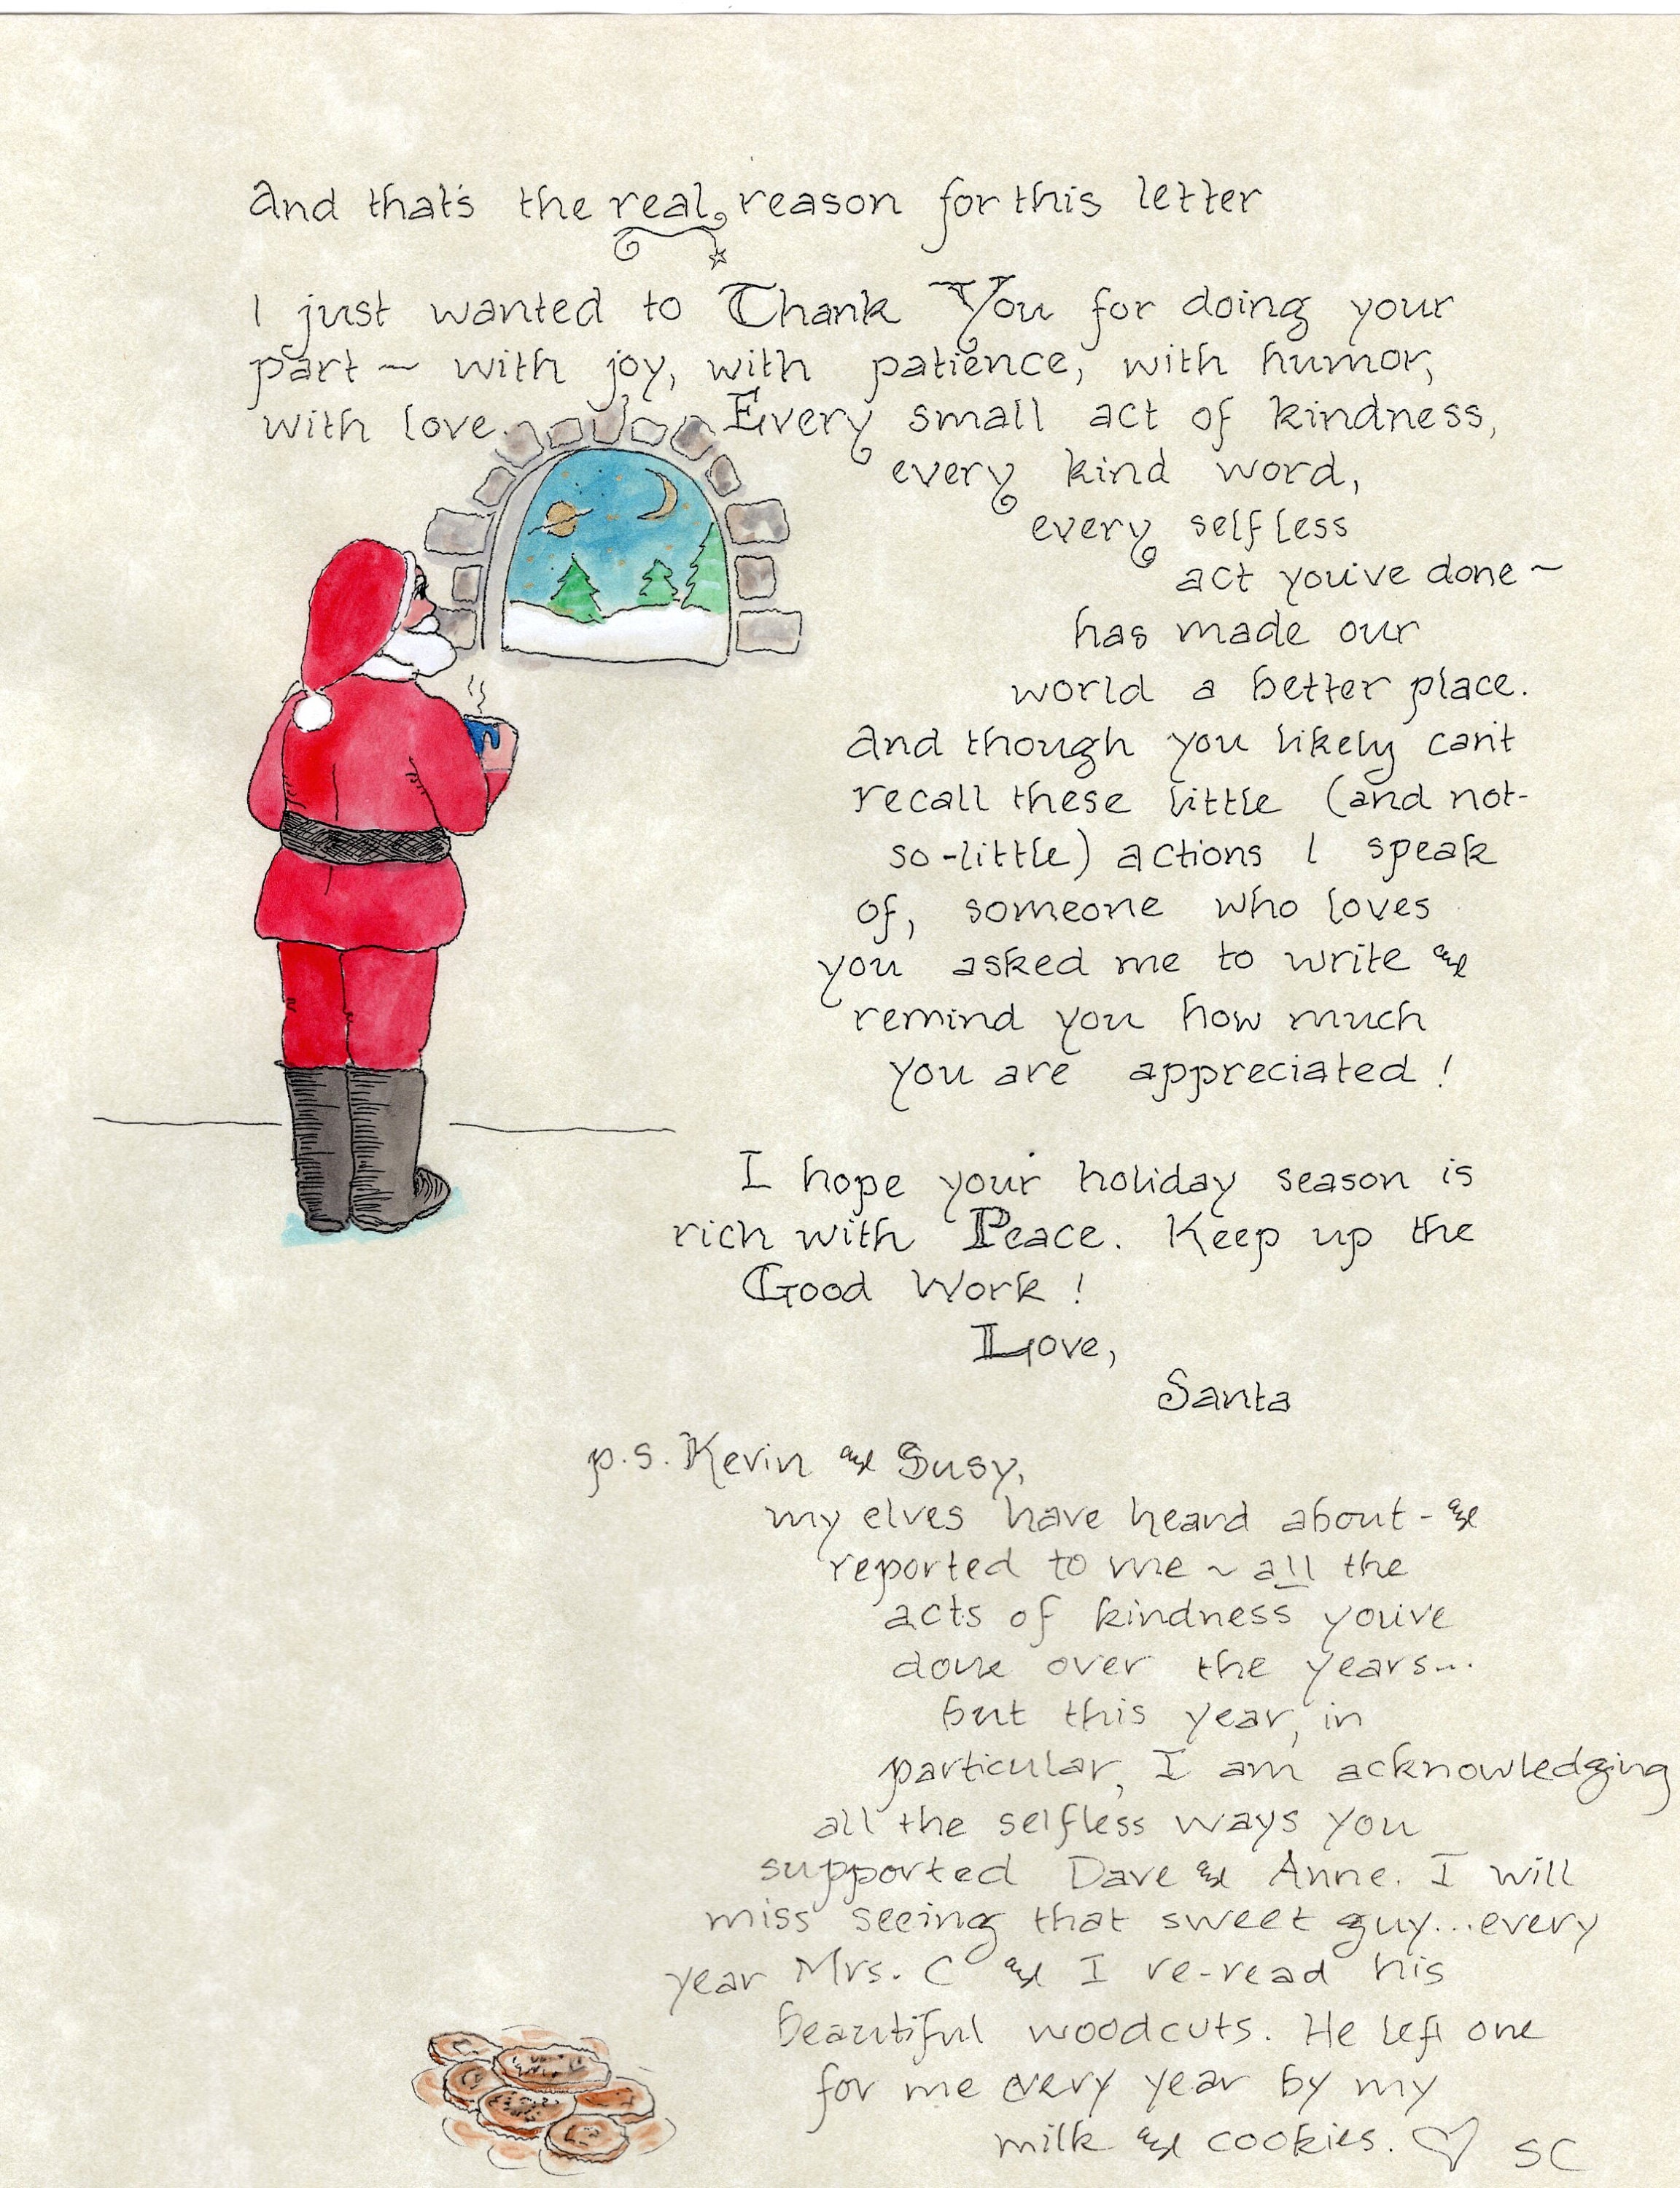 And that's the real reason for this letter
I just wanted to Thank You for doing your
part ~ with joy, with patience, with humor,
with love. Every small act of kindness,
every kind word,
every selfless
act you've done ~
has made our
world a better place.
And though you likely can't
recall these little (and not-
so-little) actions I speak
of, someone who loves
you asked me to write and
remind you how much
you are appreciated!
I hope your holiday season is
rich with Peace. Keep up the
Good Work!
Love,
Santa
p.s. Kevin and Susy,
my elves have heard about - and
reported to me ~ all the
acts of kindness you've
done over the years...
but this year, in
particular, I am acknowledging
all the selfless ways you
supported Dave and Anne. I will
miss seeing that sweet guy...every
year Mrs. C and I re-read his
beautiful woodcuts. He left one
for me every year by my
milk and cookies. ♡ SC